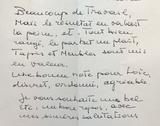 Beaucoup de Travail,
Mais le résultat en valait
la peine, et. Tout bien
rangé, le parfait un plait,
Tapis et Meubles sont mis
en valeur.
Une bonne note pour Loïc,
discret, ordonné, agréable
je vous souhaite un bel
été, un bon repos, avec
mes sincères salutations